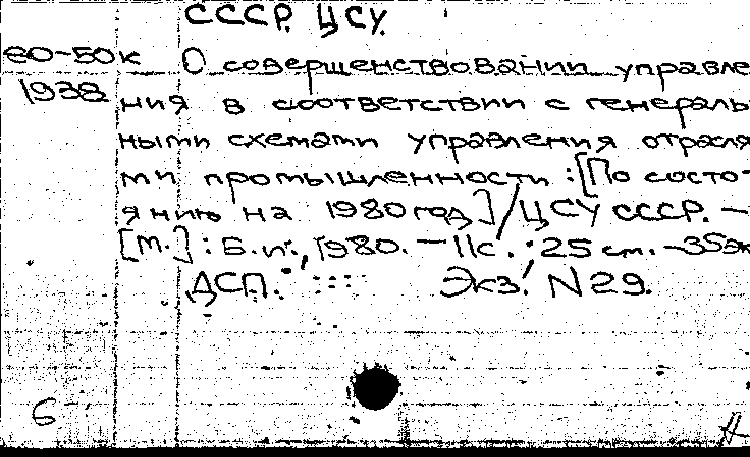 СССР. ЦСУ.
80-50к О совершенствовании управле
1938 ния в соответствии с генераль
ными схемами управления отрасля
ми промышленности : [По состо-
янию на 1980 год] / ЦСУ СССР. –
[М.] : Б.и., 1980. – 11с. ; 25 см. – 35эк
ДСП. Экз. N 29.
6